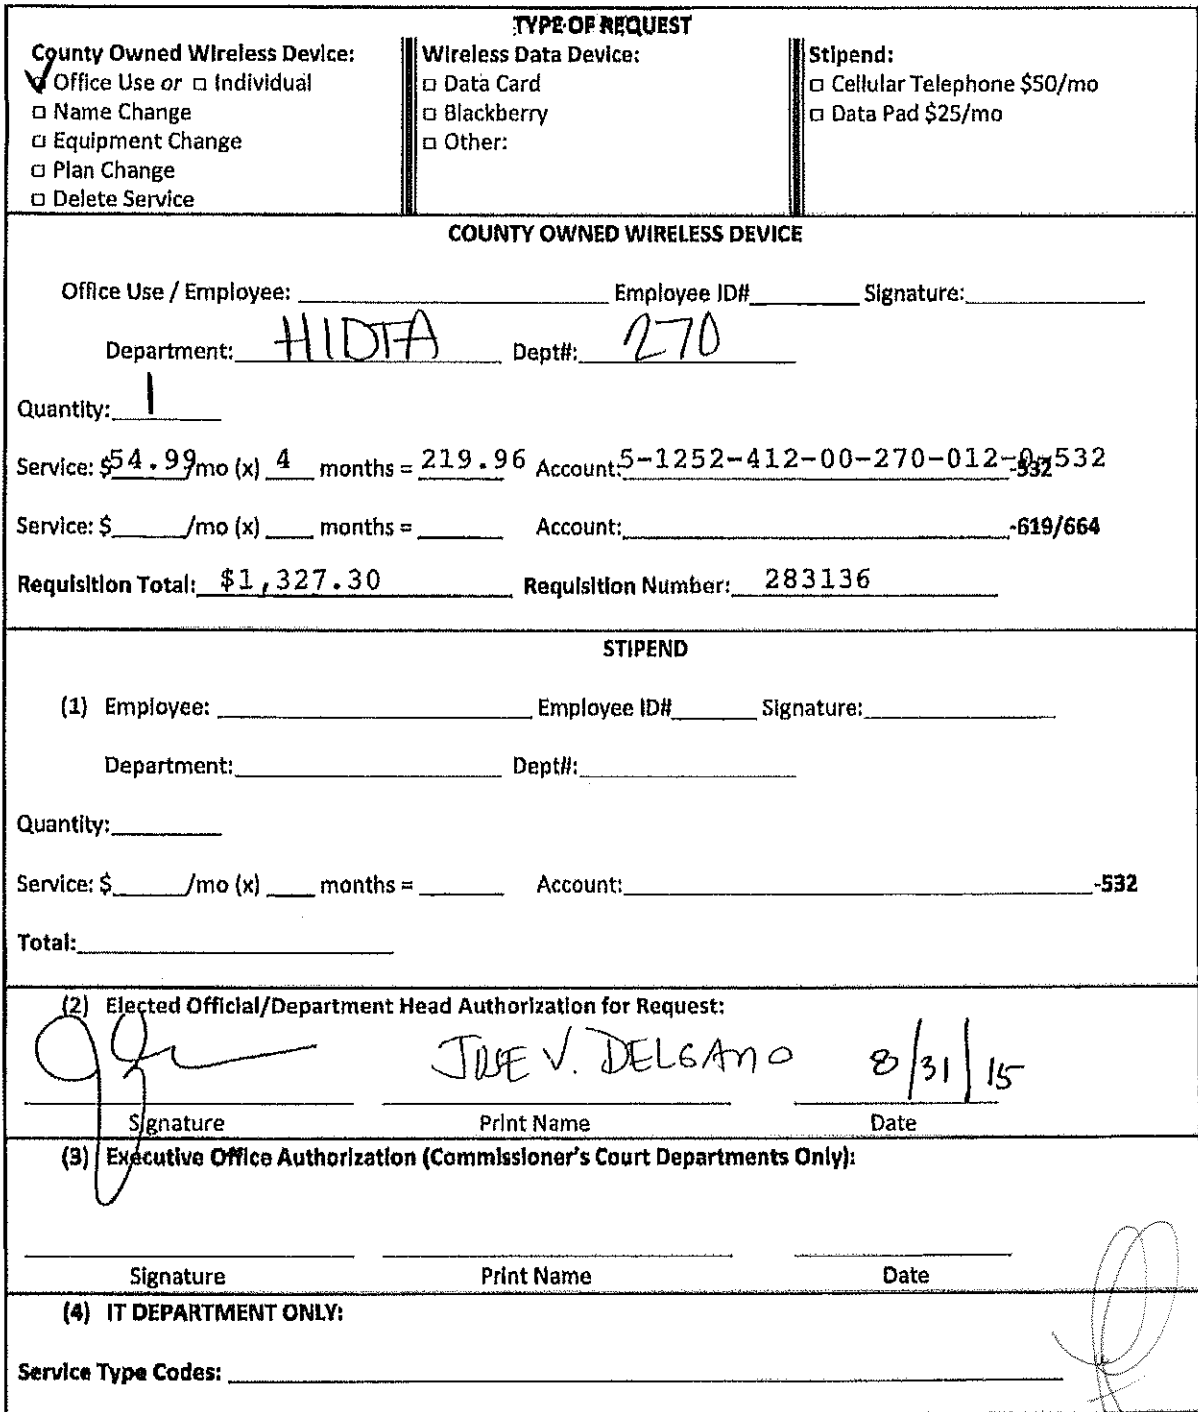 TYPE OF REQUEST
County Owned Wireless Device:
Office Use or □ Individual
□ Name Change
□ Equipment Change
□ Plan Change
□ Delete Service
Wireless Data Device:
□ Data Card
□ Blackberry
□ Other:
Stipend:
□ Cellular Telephone $50/mo
□ Data Pad $25/mo
COUNTY OWNED WIRELESS DEVICE
Office Use / Employee: ____ Employee ID# ____ Signature: ____
Department: HIDTA Dept#: 270
Quantity: 1
Service: $54.99/mo (x) 4 months = 219.96 Account: 5-1252-412-00-270-012-0-532 -532
Service: $____/mo (x) ____ months = ____ Account: ____ -619/664
Requisition Total: $1,327.30 Requisition Number: 283136
STIPEND
(1) Employee: ____ Employee ID# ____ Signature: ____
Department: ____ Dept#: ____
Quantity: ____
Service: $____/mo (x) ____ months = ____ Account: ____ -532
Total: ____
(2) Elected Official/Department Head Authorization for Request:
JOSE V. DELGADO 8/31/15
Signature Print Name Date
(3) Executive Office Authorization (Commissioner's Court Departments Only):
Signature Print Name Date
(4) IT DEPARTMENT ONLY:
Service Type Codes: ____